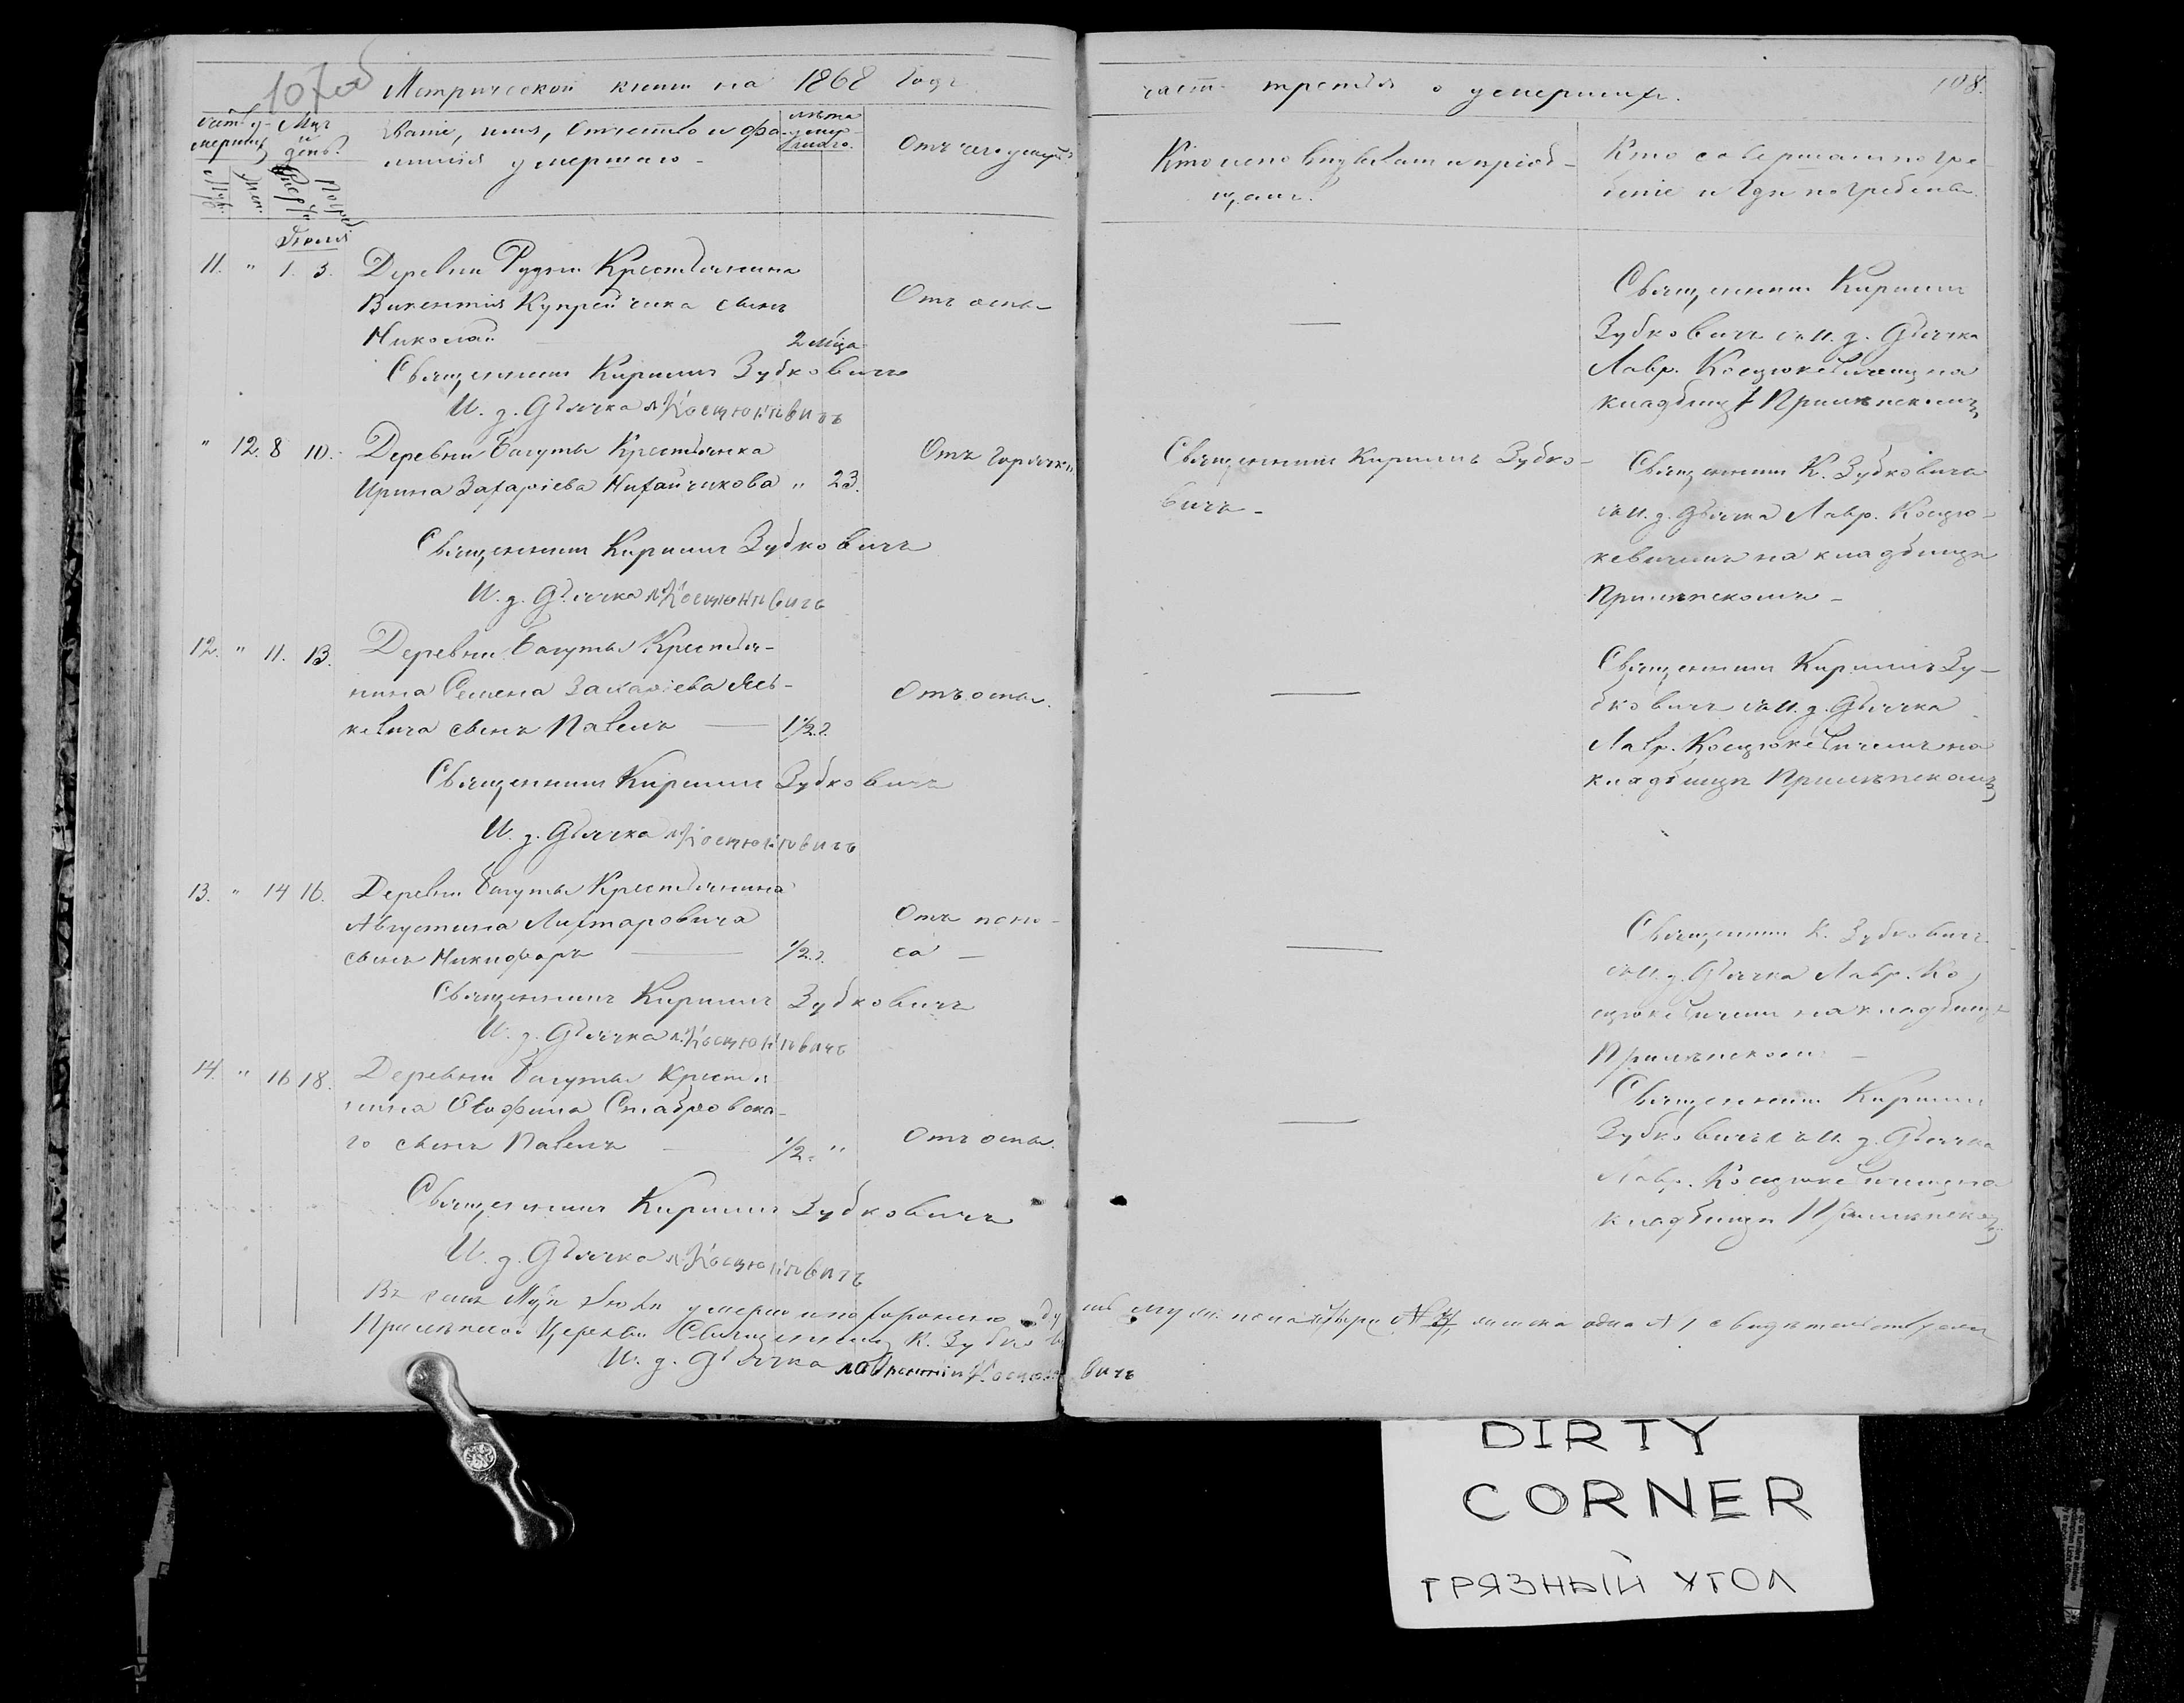 107об
Метрической книги на 1868 годъ
Счетъ умершихъ
Муж.
Жен.
Мцъ и день
Смерти
Погреб
Званіе, имя, отчество и фа-
милія умершаго
лѣта умер-
шаго.
Отъ чего умеръ
Іюля
11. " 1. 3. Деревни Рудни Крестьянина
Викентія Купрейчика сынъ
Николай 2 мца
Отъ оспы
Священникъ Кириллъ Зубковичъ
И. д. Дьячка Л. Косцюкевичъ
" 12. 8 10. Деревни Багуты Крестьянка
Ирина Захаріева Нихайчикова " 23.
Отъ горячки
Священникъ Кириллъ Зубковичъ
И. д. Дьячка Л. Косцюкевичъ
12. " 11. 13. Деревни Багуты Крестья-
нина Семена Захаріева
кевича сынъ Павелъ 1½ г.
Отъ оспы.
Священникъ Кириллъ Зубковичъ
И. д. Дьячка Л. Косцюкевичъ
13. " 14 16. Деревни Багуты Крестьянина
Августина Лихтаровича
сынъ Никифоръ ½ г.
Отъ поно-
са
Священникъ Кириллъ Зубковичъ
И. д. Дьячка Л. Косцюкевичъ
14. " 16 18. Деревни Багуты Крестья-
нина Ѳеофила Стабровска-
го сынъ Павелъ ½. "
Отъ оспы.
Священникъ Кириллъ Зубковичъ
И. д. Дьячка Л. Косцюкевичъ
Въ семъ Мцѣ Іюлѣ умерло и похоронено
Прилѣпской Церкви Священникъ К. Зубковичъ
И. д. Дьячка Лаврентій Косцюкевичъ
часть третья о умершихъ.
108.
Кто исповѣдывалъ и пріоб-
щалъ.
Кто совершалъ погре-
беніе и гдѣ погребены.
Священникъ Кириллъ
Зубковичъ съ И. д. Дьячка
Лавр. Косцюкевичемъ на
кладбищѣ Прилѣпскомъ
Священникъ Кириллъ Зубко-
вичъ
Священникъ К. Зубковичъ
съ И. д. Дьячка Лавр. Косцю-
кевичемъ на кладбищѣ
Прилѣпскомъ
Священникъ Кириллъ Зу-
бковичъ съ И. д. Дьячка
Лавр. Косцюкевичемъ на
кладбищѣ Прилѣпскомъ
Священникъ К. Зубковичъ
съ И. д. Дьячка Лавр. Ко-
сцюкевичемъ на кладбищѣ
Прилѣпскомъ
Священникъ Кириллъ
Зубковичъ съ И. д. Дьячка
Лавр. Косцюкевичемъ на
кладбищѣ Прилѣпскомъ
DIRTY
CORNER
ГРЯЗНЫЙ УГОЛ